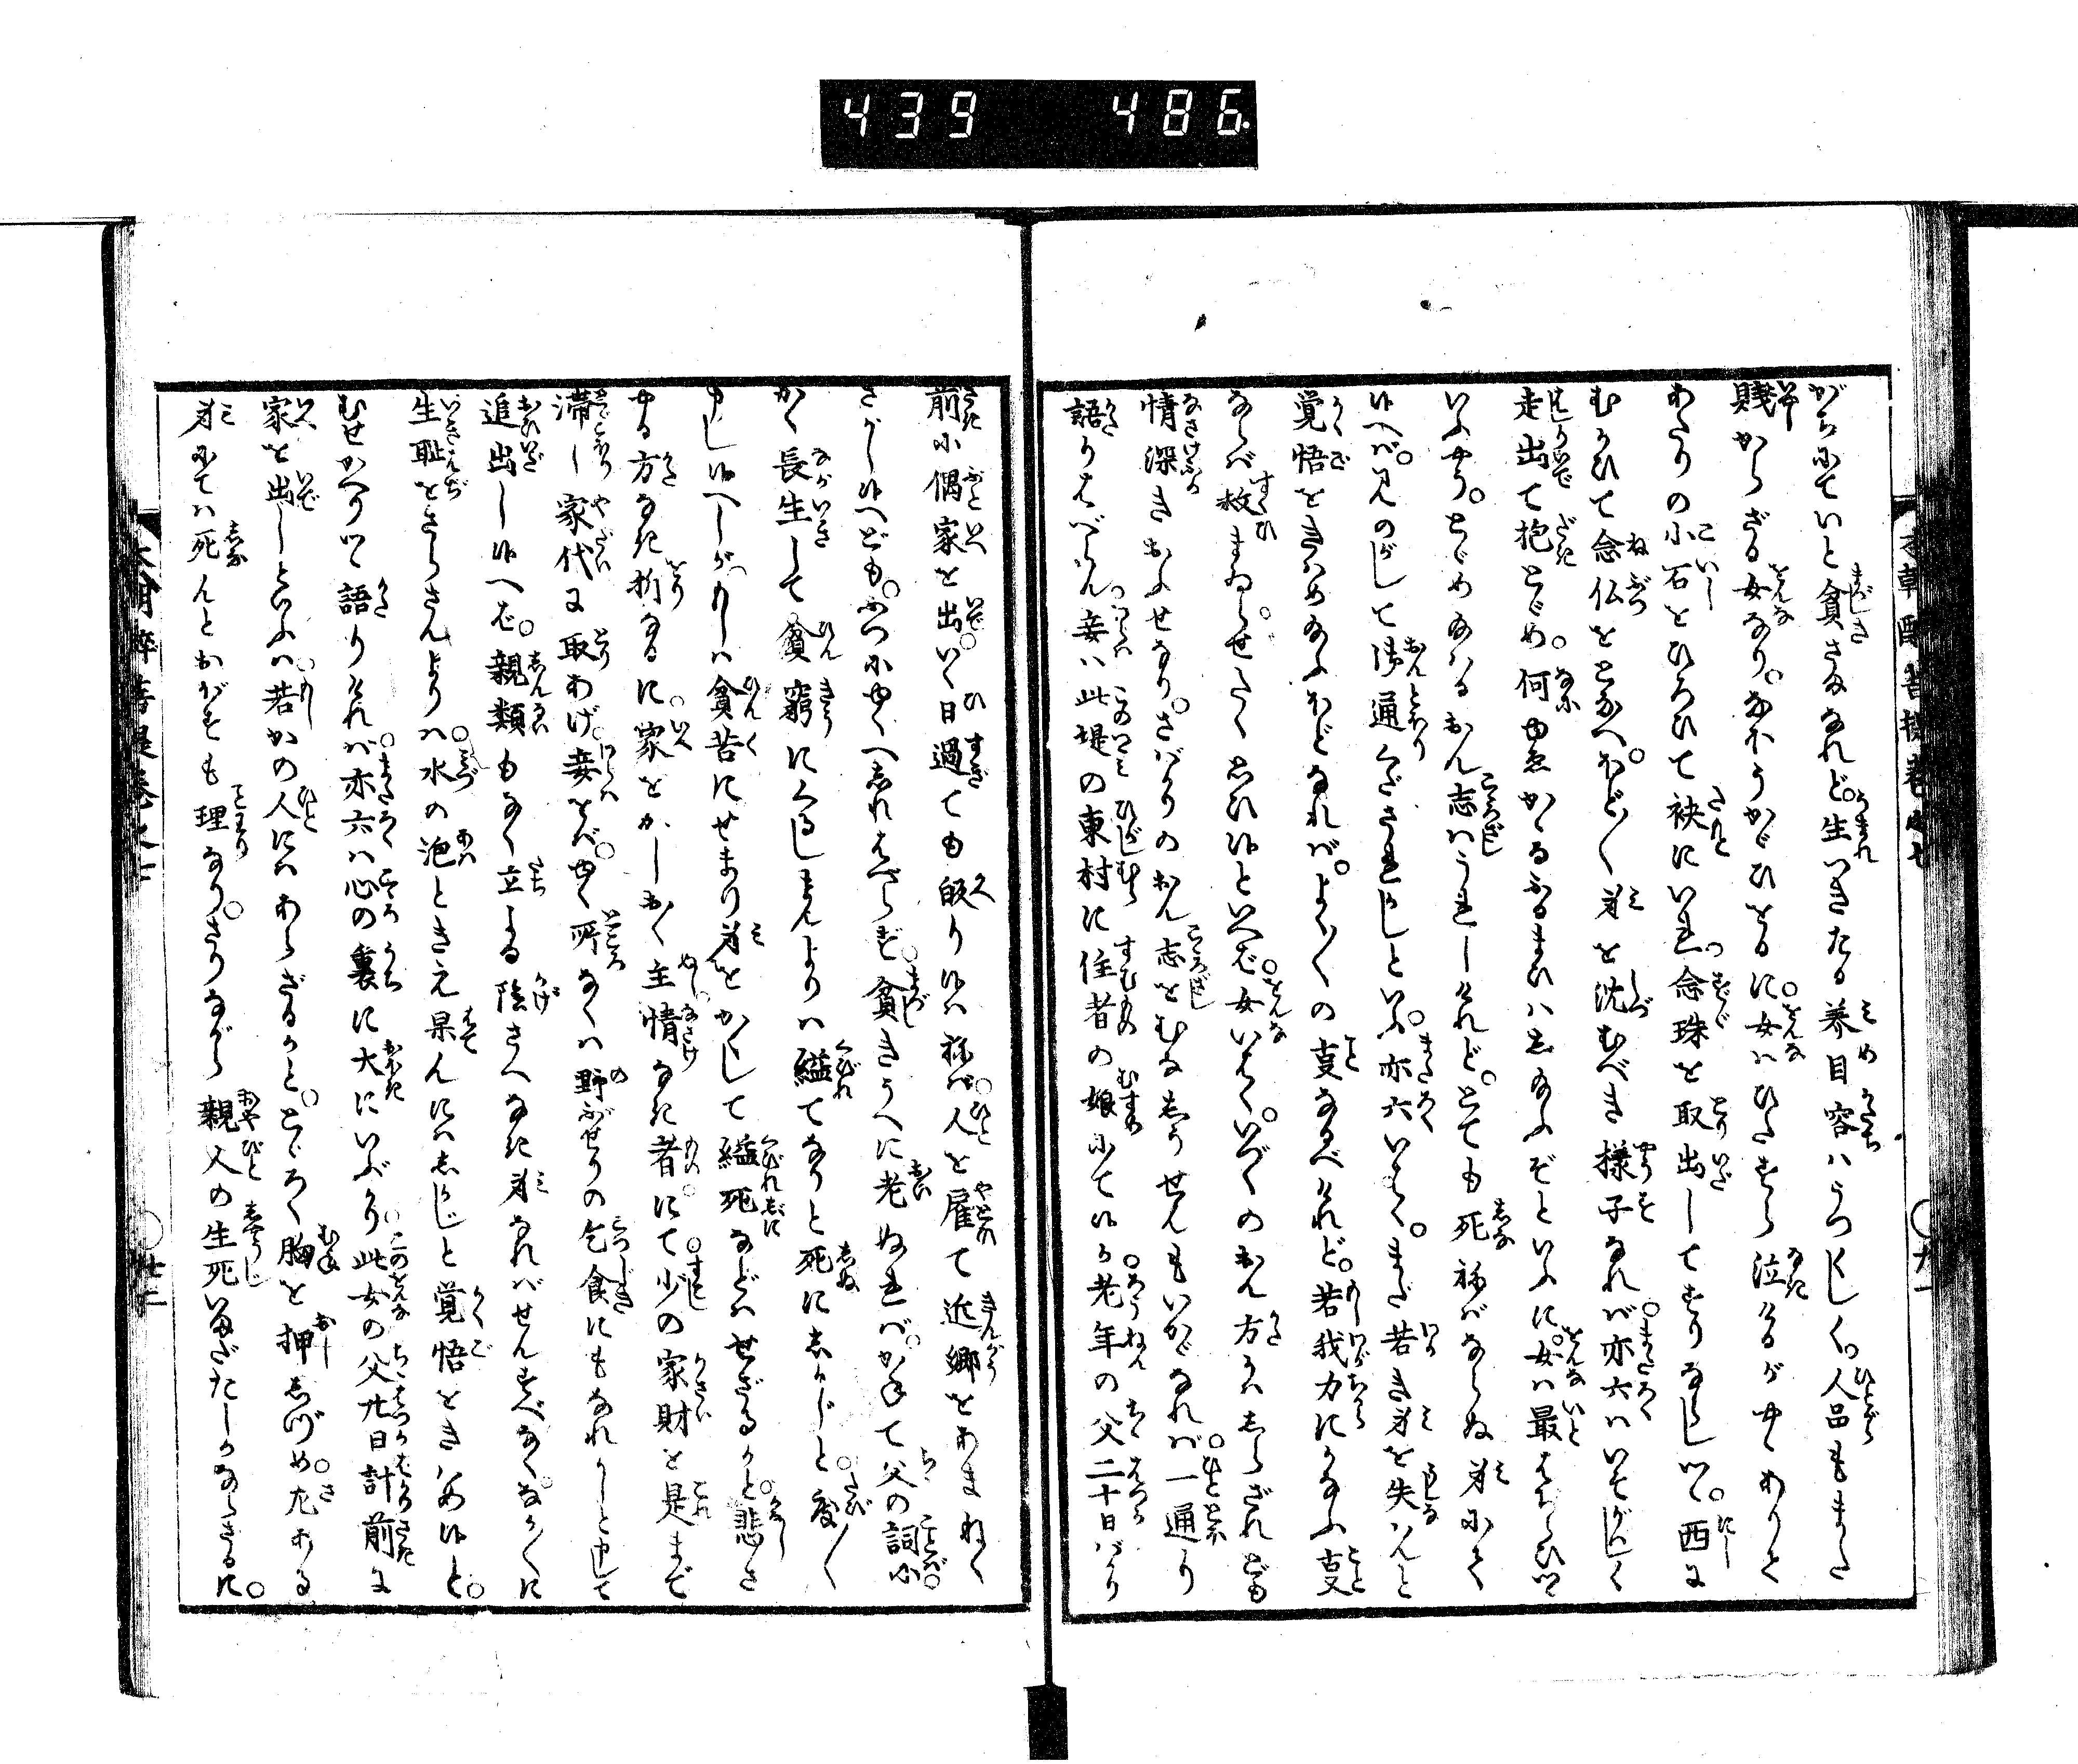 439 486
がらにていと貧きさまなれど。生つきたる養目容はうつくしく。人品もまた
賤からざる女なり。なほうかゞひをるに。女はひたすら泣けるがやゝありと
あたりの小石をひろひて袂にいれ。念珠を取出してすりならしつゝ。西に
むかひて念仏をとなへ。ほど〱身を沈むべき様子なれば。亦六はいそがはしく
走出て抱とゞめ。何ゆゑかゝるふるまひはし玉ふぞといふに。女は最はぢらひつゝ
いふやう。とゞめ玉はるおん志はうれしけれど。とても死ねばならぬ身にて
候へば。見のがして御通くだされかしといふ。亦六いはく。まだ若き身を失はんと
覚悟をきはめ玉ふほどなれば。よく〱の事なるべけれど。若我力にかなふ事
ならば救まゐらせたく思ひ候といへば。女いはく。いづくのおん方かはしらざれども
情深きおふせなり。さばかりのおん志をむなしうせんもいかゞなれば。一通り
語りはべらん。妾は此堤の東村に住者の娘にて候が。老年の父二十日ばかり
前に偶家を出。いく日過ても皈り候はねば。人を雇て近郷をあまねく
さがし候へども。かつふゆくへしれはべらず。貧きうへに老ぬれば。かねて父の詞に。
かく長生して貧窮にくらしまんよりは縊てなりと死にしかじと。度〱
申し候へしが。もしは貧苦にせまり身をかくして縊死などはせざるかと。悲さ
やる方なき折なるに。家をかしおく主情なき者にて。少の家財を是まで
滞し家代に取あげ。妾をば。ゆく所なくは野ぶせりの乞食にもなれかしと申して
追出し候へば。親類もなく立よる陰さへなき身なればせんすべなく。なか〱に
生恥をさらさんよりは。水の泡ときえ果んにはしかじと覚悟をきはめ候と。
むせかへりつゝ語りければ。亦六は心の裏に大にいぶかり。此女の父廿日計前に
家を出しといふは。若かの人にはあらざるかと。とゞろく胸を押しづめ。左ある
身にては死んとおぼすも理なり。さりながら親人の生死いまだたしかならざるに。